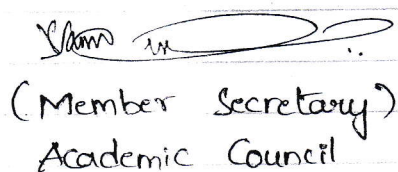 (Member Secretary)
Academic Council